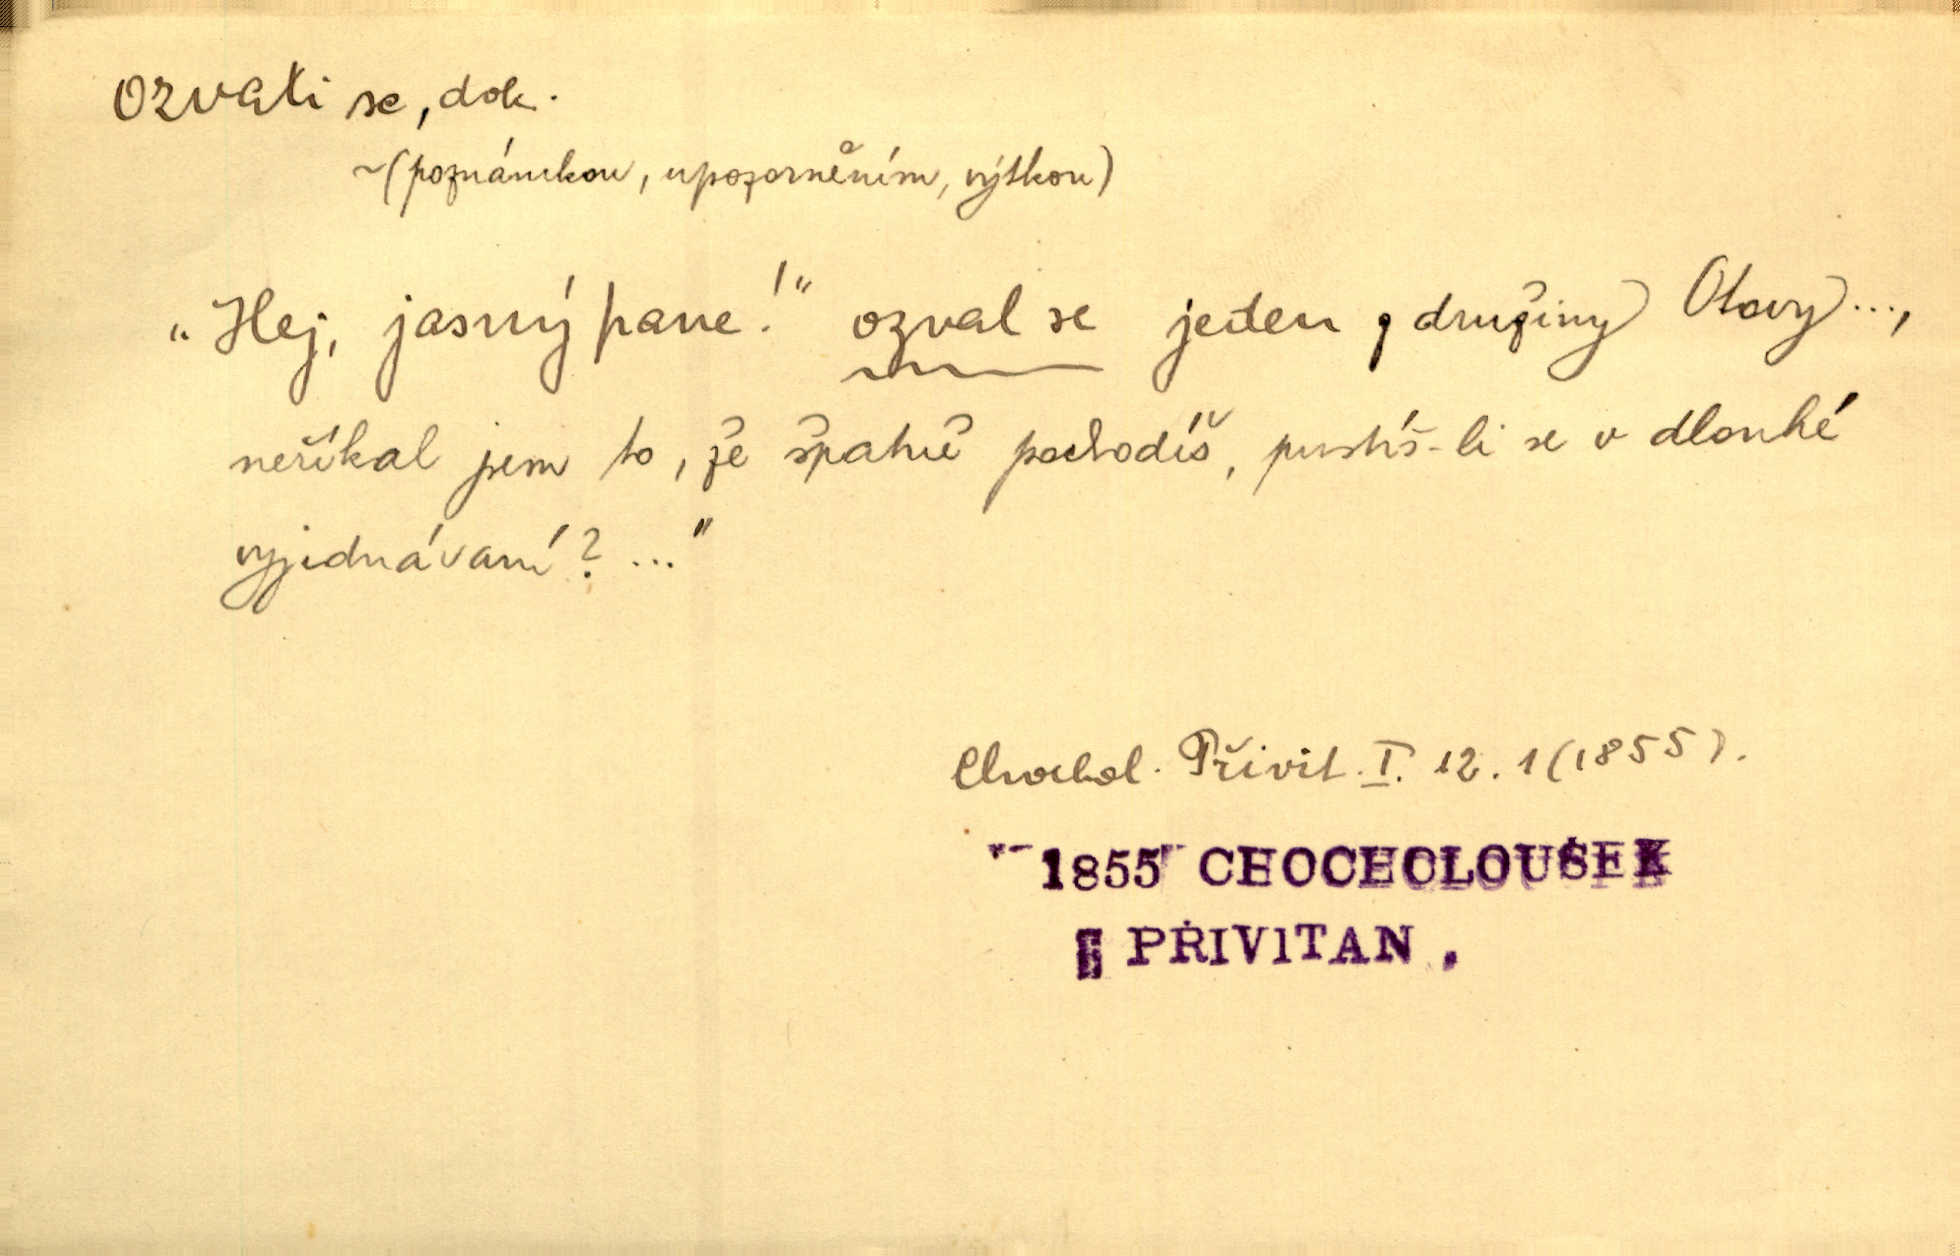 ozvati se, dok.
~(poznámkou, upozorněním, výtkou)
„Hej, jasný pane!“ ozval se jeden z družiny Otavy...,
neříkal jsem to, že špatně pochodíš, pustíš-li se v dlouhé
vyjednávaní? ..."
Chochol. Přivit. I. 12. 1 (1855).
1855 CHOCHOLOUŠEK
PŘIVITAN .